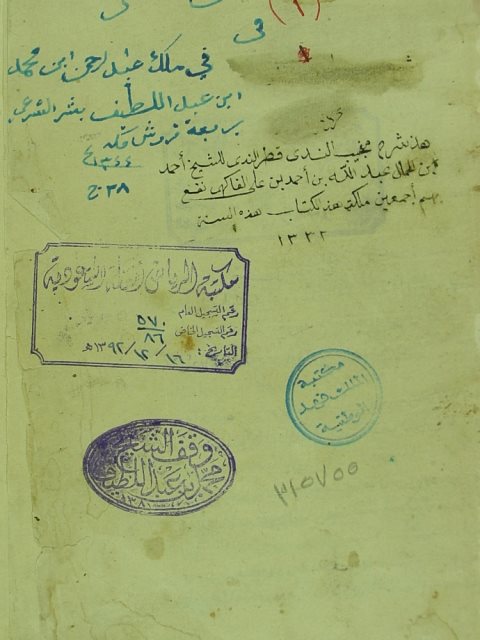 (١)
في
في ملك عبد الرحمن ابن محمد
ابن عبد اللطيف بشر الشرعي
بربعة قروش
١٣٤٤
٣٨
هذ شرح مجيب الندى قطر الندى للشيخ أحمد
ابن الجمال عبد الله بن أحمد بن علي الفاكهي نفع
بهم أجمعين ملكت هذ لكتاب هذه السنة
١٣٣٢
مكتبة الرياض السعودية
رقم التسجيل العام ٥٧٠
رقم التسجيل الخاص ٨٦
التاريخ: ١٦ / ١٢ / ١٣٩٢هـ
مكتبة
الملك فهد
الوطنية
وقف الشيخ
محمد بن عبد اللطيف
١٣٨١
٣١٥٧٥٥